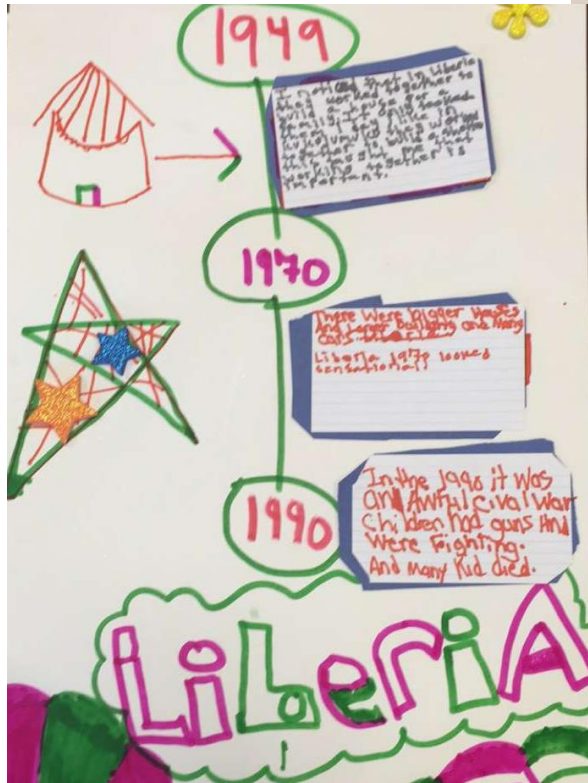 1949
I noticed that in Liberia
they worked together to
build a house for a
family. it only looked
like in
they worked
together to build a
this taught me that
working together is
important.
1970
There were bigger Houses
And Larger Building and Many
cars
Liberia 1970 looked
sensational!
1990
In the 1990 it was
an Awful Cival War
Children had guns And
were Fighting.
And Many Kid died.
LiberiA